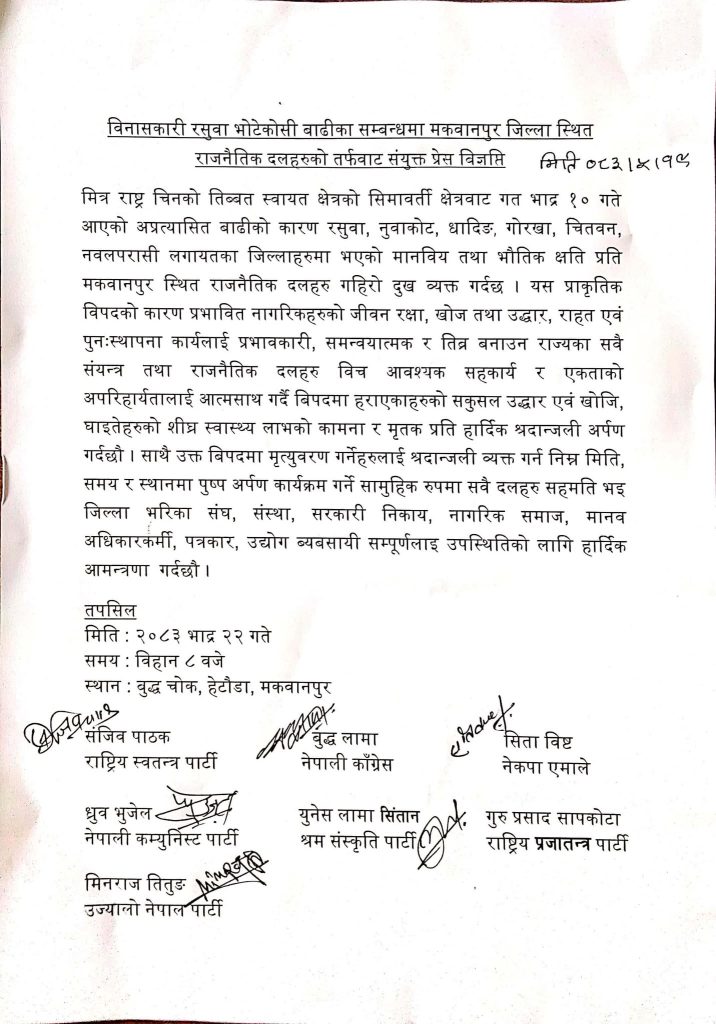 विनासकारी रसुवा भोटेकोसी बाढीका सम्बन्धमा मकवानपुर जिल्ला स्थित
राजनैतिक दलहरुको तर्फवाट संयुक्त प्रेस विज्ञप्ति
मिति ०८३।५।१९
मित्र राष्ट्र चिनको तिब्बत स्वायत क्षेत्रको सिमावर्ती क्षेत्रवाट गत भाद्र १० गते
आएको अप्रत्यासित बाढीको कारण रसुवा, नुवाकोट, धादिङ, गोरखा, चितवन,
नवलपरासी लगायतका जिल्लाहरुमा भएको मानविय तथा भौतिक क्षति प्रति
मकवानपुर स्थित राजनैतिक दलहरु गहिरो दुख व्यक्त गर्दछ । यस प्राकृतिक
विपदको कारण प्रभावित नागरिकहरुको जीवन रक्षा, खोज तथा उद्धार, राहत एवं
पुनःस्थापना कार्यलाई प्रभावकारी, समन्वयात्मक र तिव्र बनाउन राज्यका सवै
संयन्त्र तथा राजनैतिक दलहरु विच आवश्यक सहकार्य र एकताको
अपरिहार्यतालाई आत्मसाथ गर्दै बिपदमा हराएकाहरुको सकुसल उद्धार एवं खोजि,
घाइतेहरुको शीघ्र स्वास्थ्य लाभको कामना र मृतक प्रति हार्दिक श्रदान्जली अर्पण
गर्दछौ । साथै उक्त बिपदमा मृत्युवरण गर्नेहरुलाई श्रदान्जली व्यक्त गर्न निम्न मिति,
समय र स्थानमा पुष्प अर्पण कार्यक्रम गर्ने सामुहिक रुपमा सवै दलहरु सहमति भइ
जिल्ला भरिका संघ, संस्था, सरकारी निकाय, नागरिक समाज, मानव
अधिकारकर्मी, पत्रकार, उद्योग ब्यबसायी सम्पूर्णलाइ उपस्थितिको लागि हार्दिक
आमन्त्रणा गर्दछौ ।
तपसिल
मिति : २०८३ भाद्र २२ गते
समय : विहान ८ वजे
स्थान : वुद्ध चोक, हेटौडा, मकवानपुर
संजिव पाठक
राष्ट्रिय स्वतन्त्र पार्टी
वुद्ध लामा
नेपाली काँग्रेस
सिता विष्ट
नेकपा एमाले
ध्रुव भुजेल
नेपाली कम्युनिस्ट पार्टी
युनेस लामा सिंतान
श्रम संस्कृति पार्टी
गुरु प्रसाद सापकोटा
राष्ट्रिय प्रजातन्त्र पार्टी
मिनराज तितुङ
उज्यालो नेपाल पार्टी